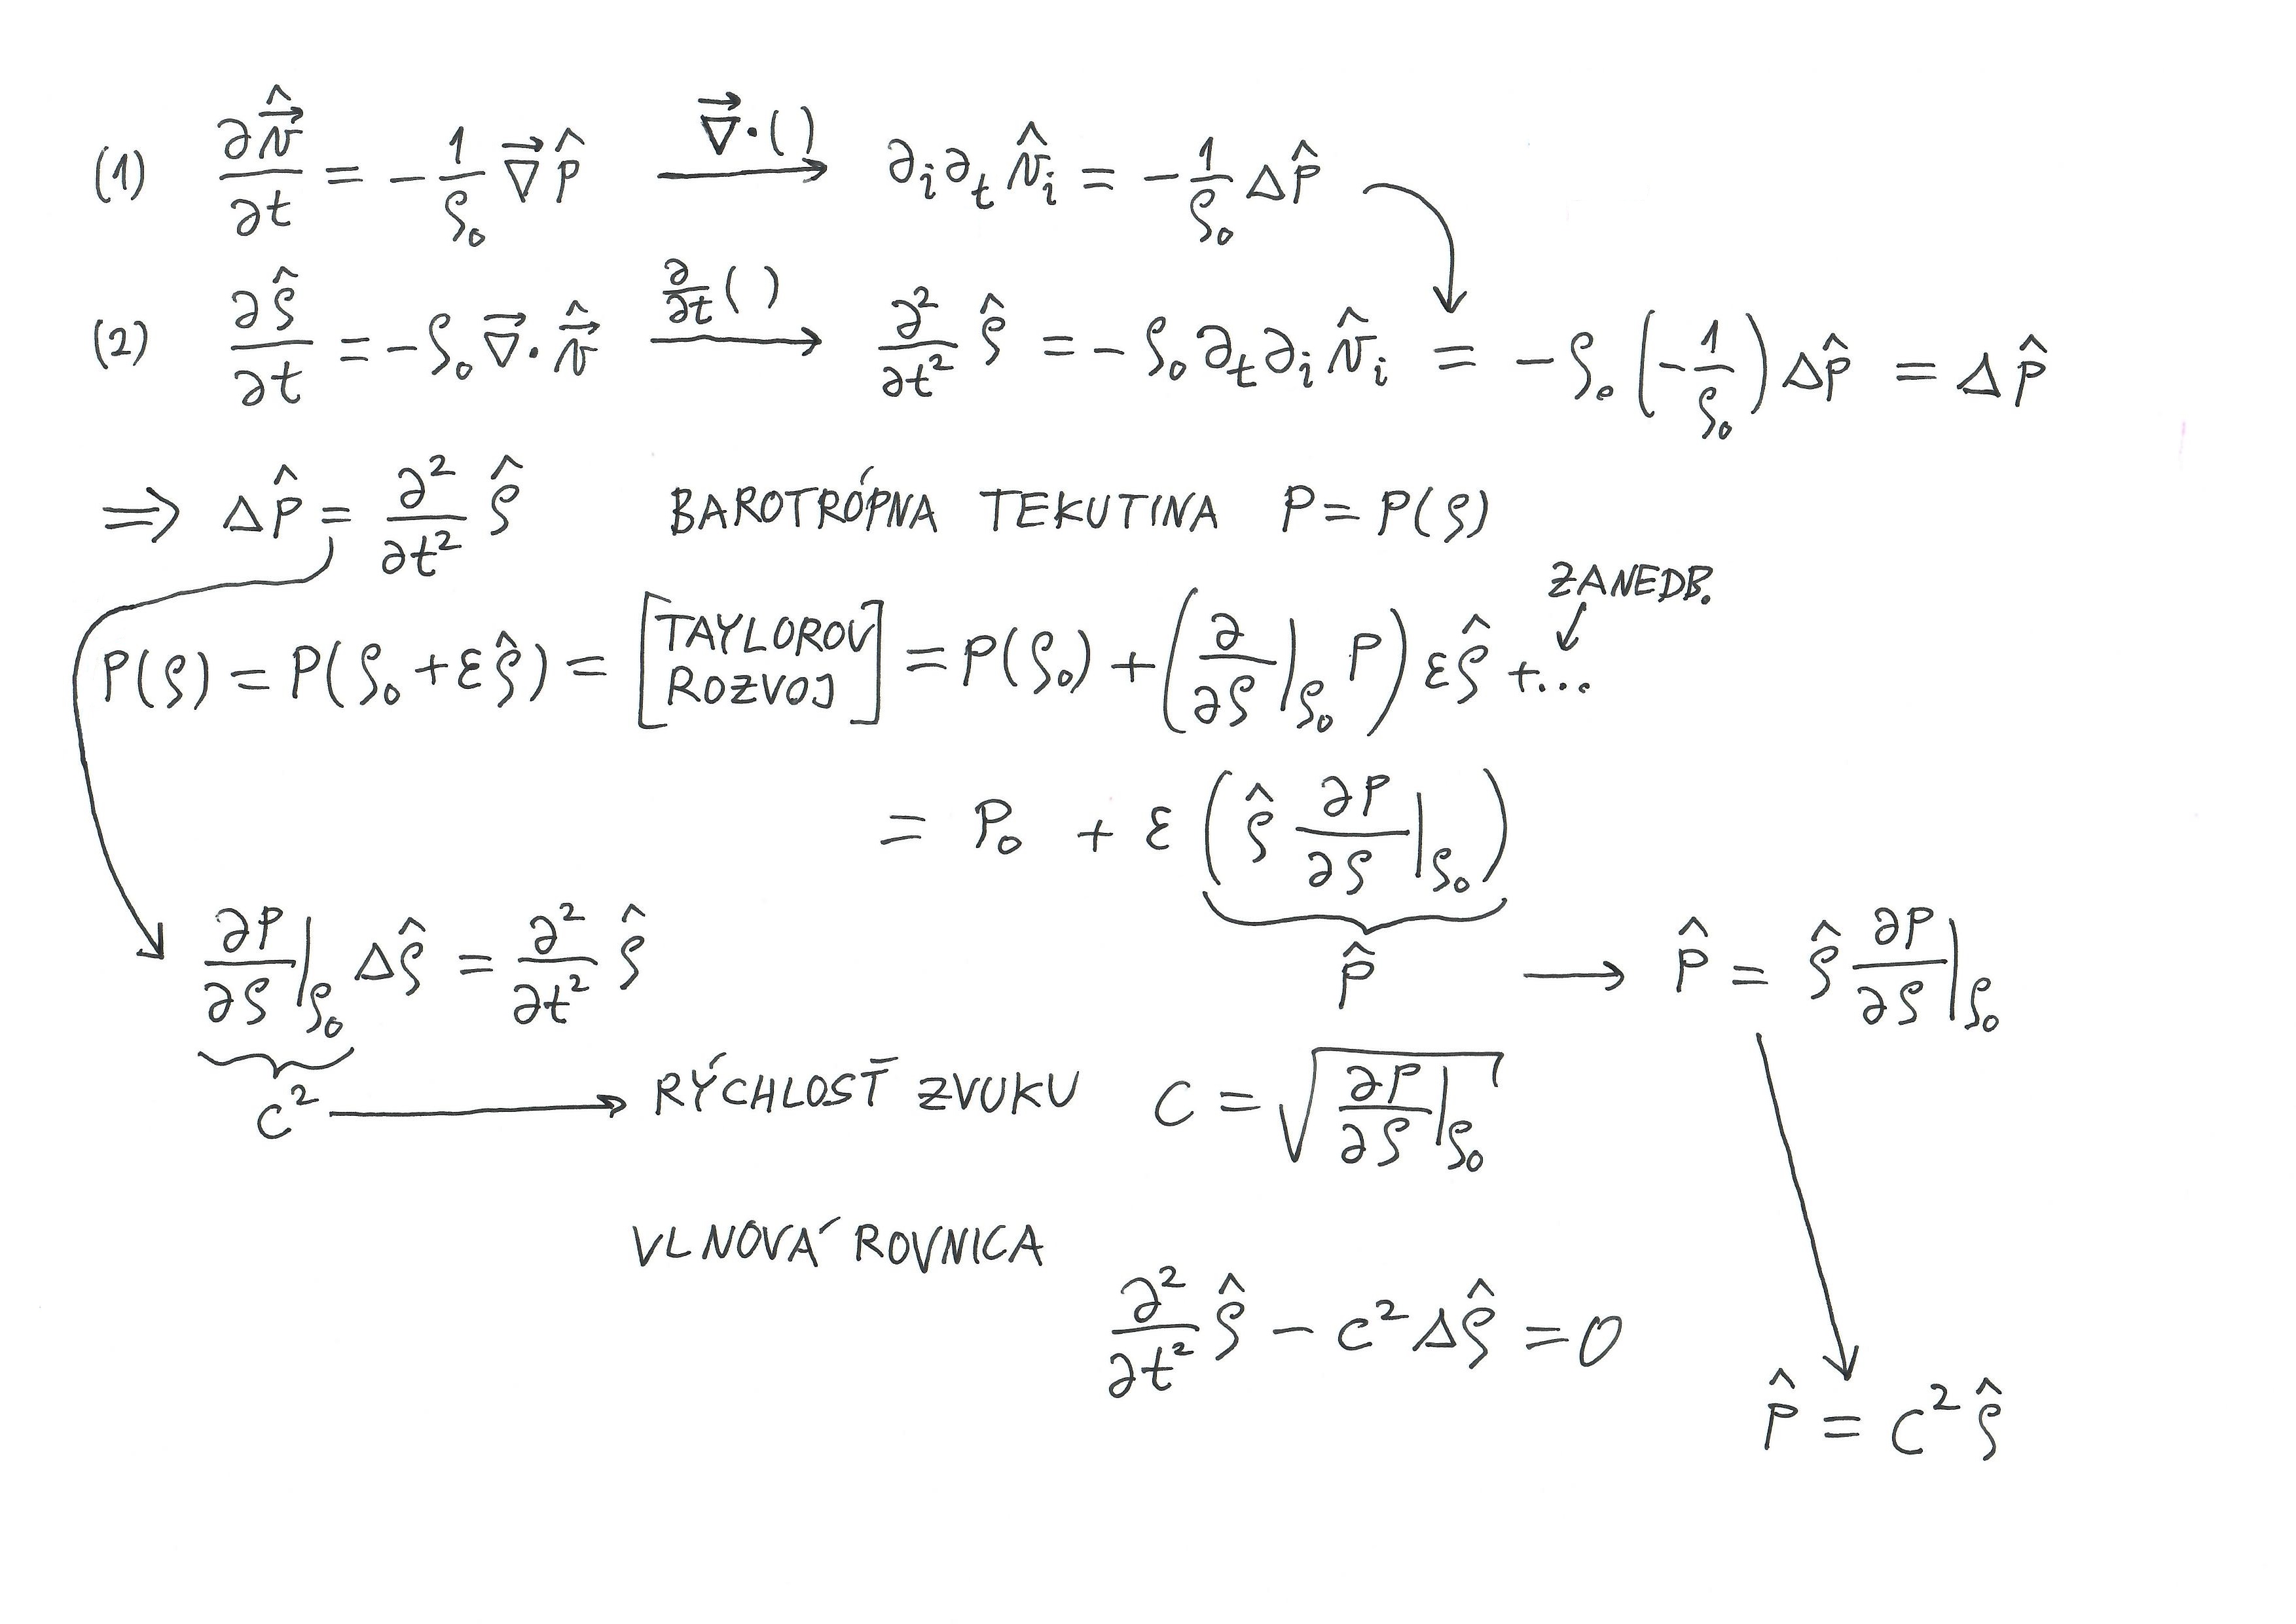 (1) ∂v̂⃗/∂t = −1/ρ₀ ∇⃗p̂ →[∇⃗·( )] ∂ᵢ∂ₜv̂ᵢ = −1/ρ₀ Δp̂
(2) ∂ρ̂/∂t = −ρ₀∇⃗·v̂⃗ →[∂/∂t ( )] ∂²/∂t² ρ̂ = −ρ₀∂ₜ∂ᵢv̂ᵢ = −ρ₀(−1/ρ₀)Δp̂ = Δp̂
⇒ Δp̂ = ∂²/∂t² ρ̂ BAROTRÓPNA TEKUTINA P = P(ρ)
ZANEDB.
P(ρ) = P(ρ₀+ερ̂) = [TAYLOROV ROZVOJ] = P(ρ₀) + (∂/∂ρ|ρ₀ P) ερ̂ +...
= P₀ + ε (ρ̂ ∂P/∂ρ|ρ₀)
∂P/∂ρ|ρ₀ Δρ̂ = ∂²/∂t² ρ̂ p̂ → p̂ = ρ̂ ∂P/∂ρ|ρ₀
c² → RÝCHLOSŤ ZVUKU c = √(∂P/∂ρ|ρ₀)
VLNOVÁ ROVNICA
∂²/∂t² ρ̂ − c²Δρ̂ = 0
p̂ = c²ρ̂